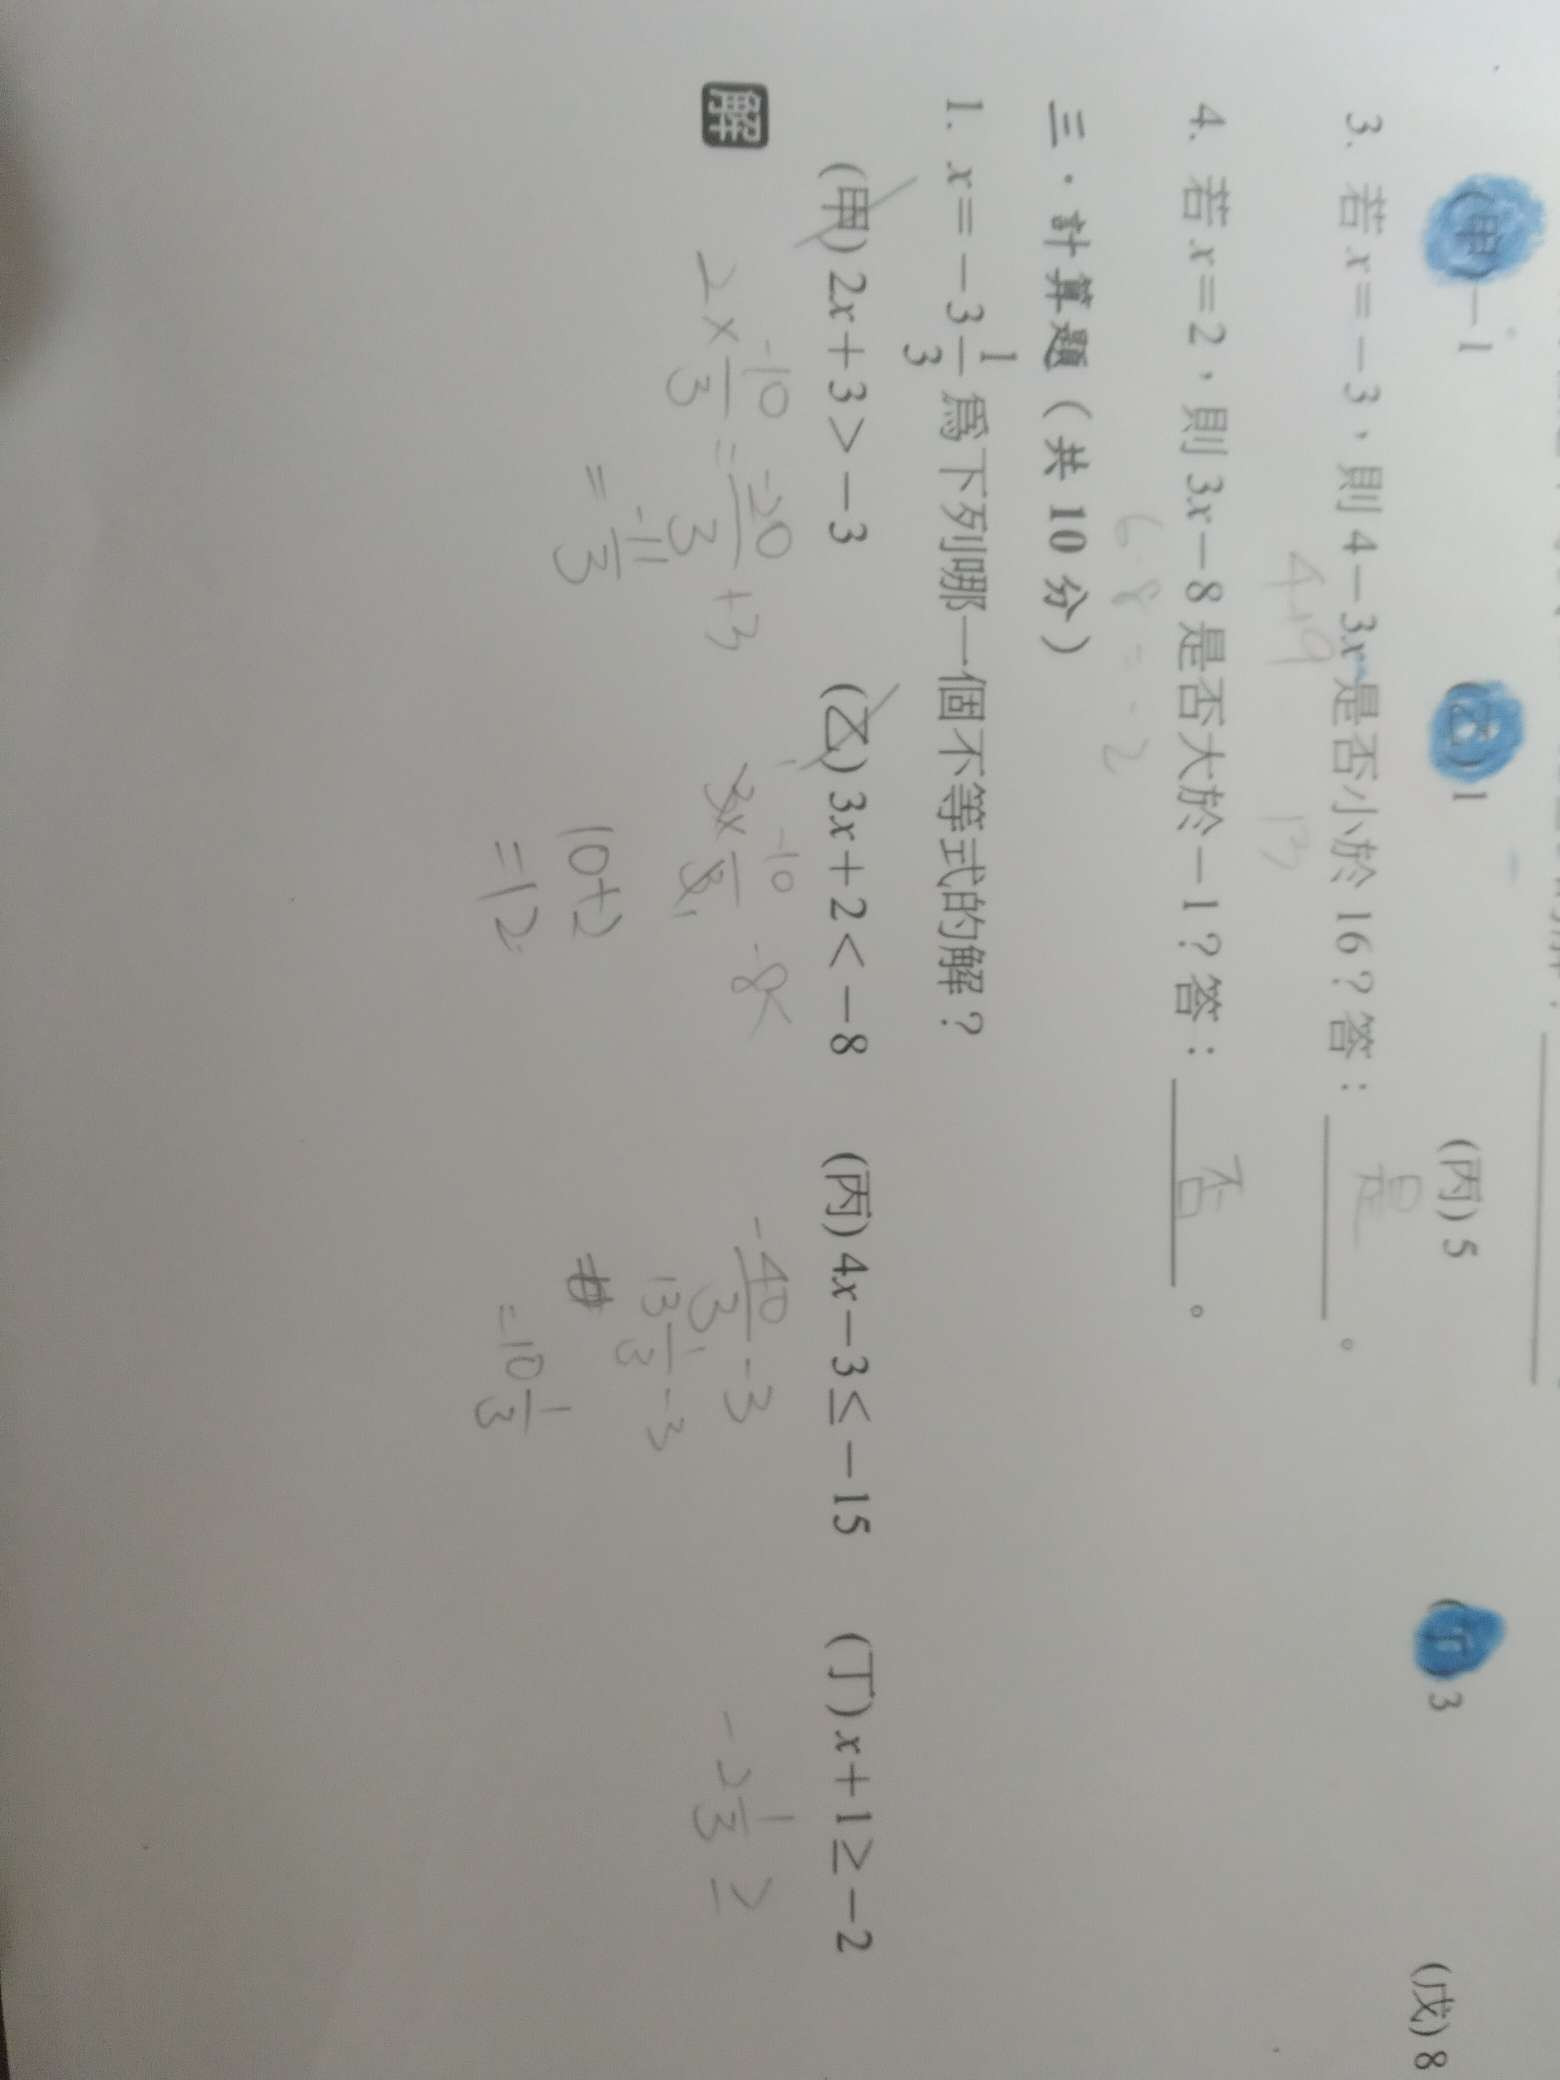 (甲)－1 (乙)1 (丙)5 (丁)3 (戊)8
3. 若 x＝－3，則 4－3x 是否小於 16？答：是。
4+9 13
4. 若 x＝2，則 3x－8 是否大於－1？答：否。
6-8=-2
三．計算題（共 10 分）
1. x＝－3 1/3 為下列哪一個不等式的解？
(甲) 2x＋3＞－3 (乙) 3x＋2＜－8 (丙) 4x－3≤－15 (丁) x＋1≥－2
解
2× -10/3 = -20/3 +3
= -11/3
3× -10/3 -8<
10+2
=12
-40/3 -3
13 1/3 -3
=-10 1/3
-2 1/3 ≥